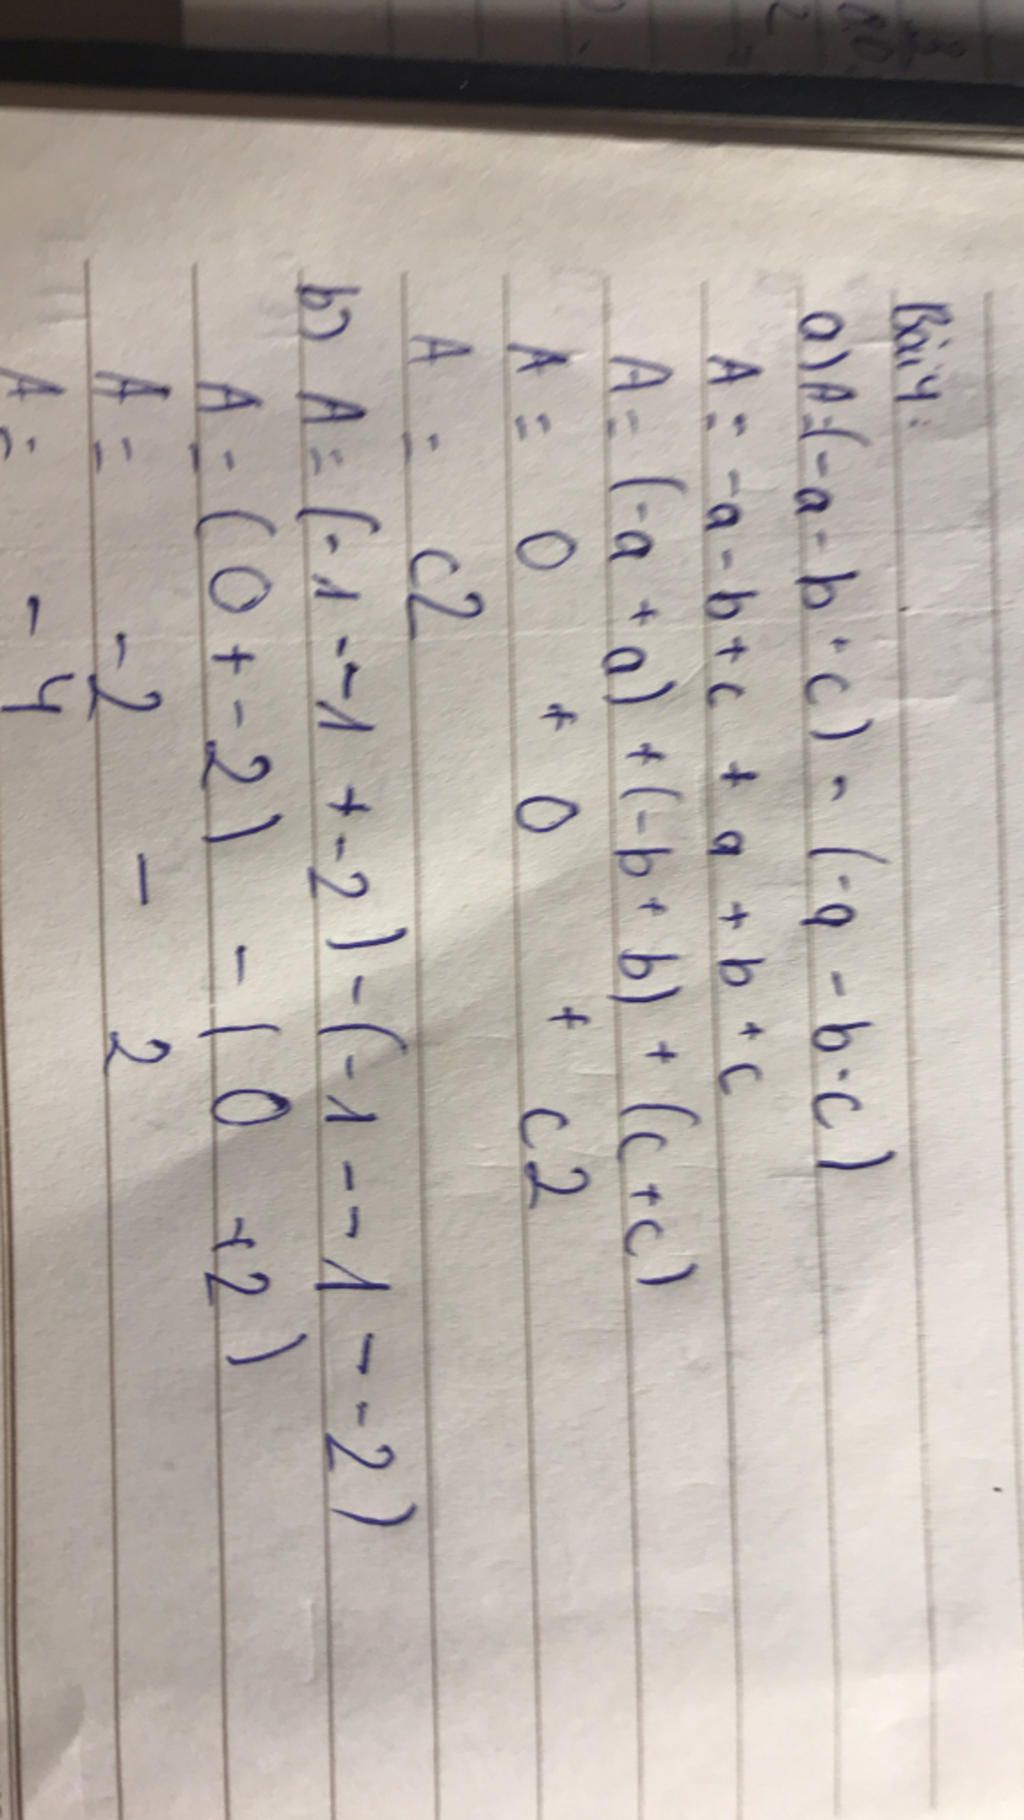 Bài 4:
a) A = (-a - b + c) - (-a - b - c)
A = -a - b + c + a + b + c
A = (-a + a) + (-b + b) + (c + c)
A = 0 + 0 + c2
A = c2
b) A = (-1 - -1 + -2) - (-1 - -1 - -2)
A = (0 + -2) - (0 + 2)
A = -2 - 2
A = -4